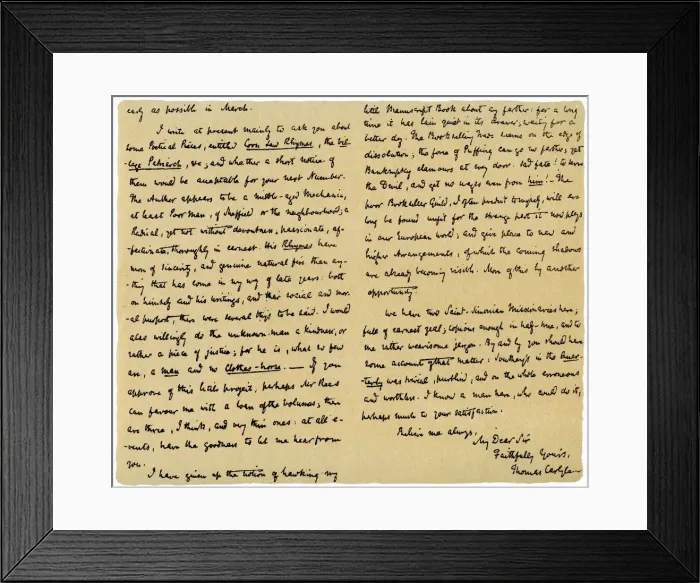 early as possible in March.
I write at present mainly to ask you about
some Poetical Pieces, entitled Corn Law Rhymes, the Vil-
-lage Patriarch, &c; and whether a short notice of
them would be acceptable for your next Number.
The Author appears to be a middle-aged Mechanic,
at least Poor Man, of Sheffield or the neighbourhood; a
Radical, yet not without devoutness; passionate, af-
-fectionate, thoroughly in earnest. His Rhymes have
more of sincerity, and genuine natural fire than any-
-thing that has come in my way of late years: both
on himself and his writings, and their social and mor-
-al purport, there were several things to be said. I would
also willingly do the unknown man a kindness, or
rather a piece of justice; for he is, what so few
are, a man and no clothes-horse. — If you
approve of this little project, perhaps Mr Rees
can favour me with a loan of the volumes; there
are three, I think, and very thin ones: at all e-
-vents, have the goodness to let me hear from
you.
I have given up the notion of hawking my
little Manuscript Book about any farther: for a long
time it has lain quiet in its drawer, waiting for a
better day. The Bookselling Trade seems on the edge of
dissolution; the force of Puffing can go no farther; yet
Bankruptcy clamours at every door: sad fate! to serve
the Devil, and get no wages even from him! — The
poor Bookseller Guild, I often predict to myself, will ere
long be found unfit for the strange part it now plays
in our European World; and give place to new and
higher Arrangements, of which the coming shadows
are already becoming visible. More of this by another
opportunity.
We have two Saint-Simonian Missionaries here;
full of earnest zeal; copious enough in half-true, and to
me rather wearisome jargon. By and by you should have
some account of that matter: Southey's in the Quar-
-terly was trivial, purblind, and on the whole erroneous
and worthless. I know a man here, who could do it,
perhaps much to your satisfaction.
Believe me always,
My Dear Sir
Faithfully Yours,
Thomas Carlyle